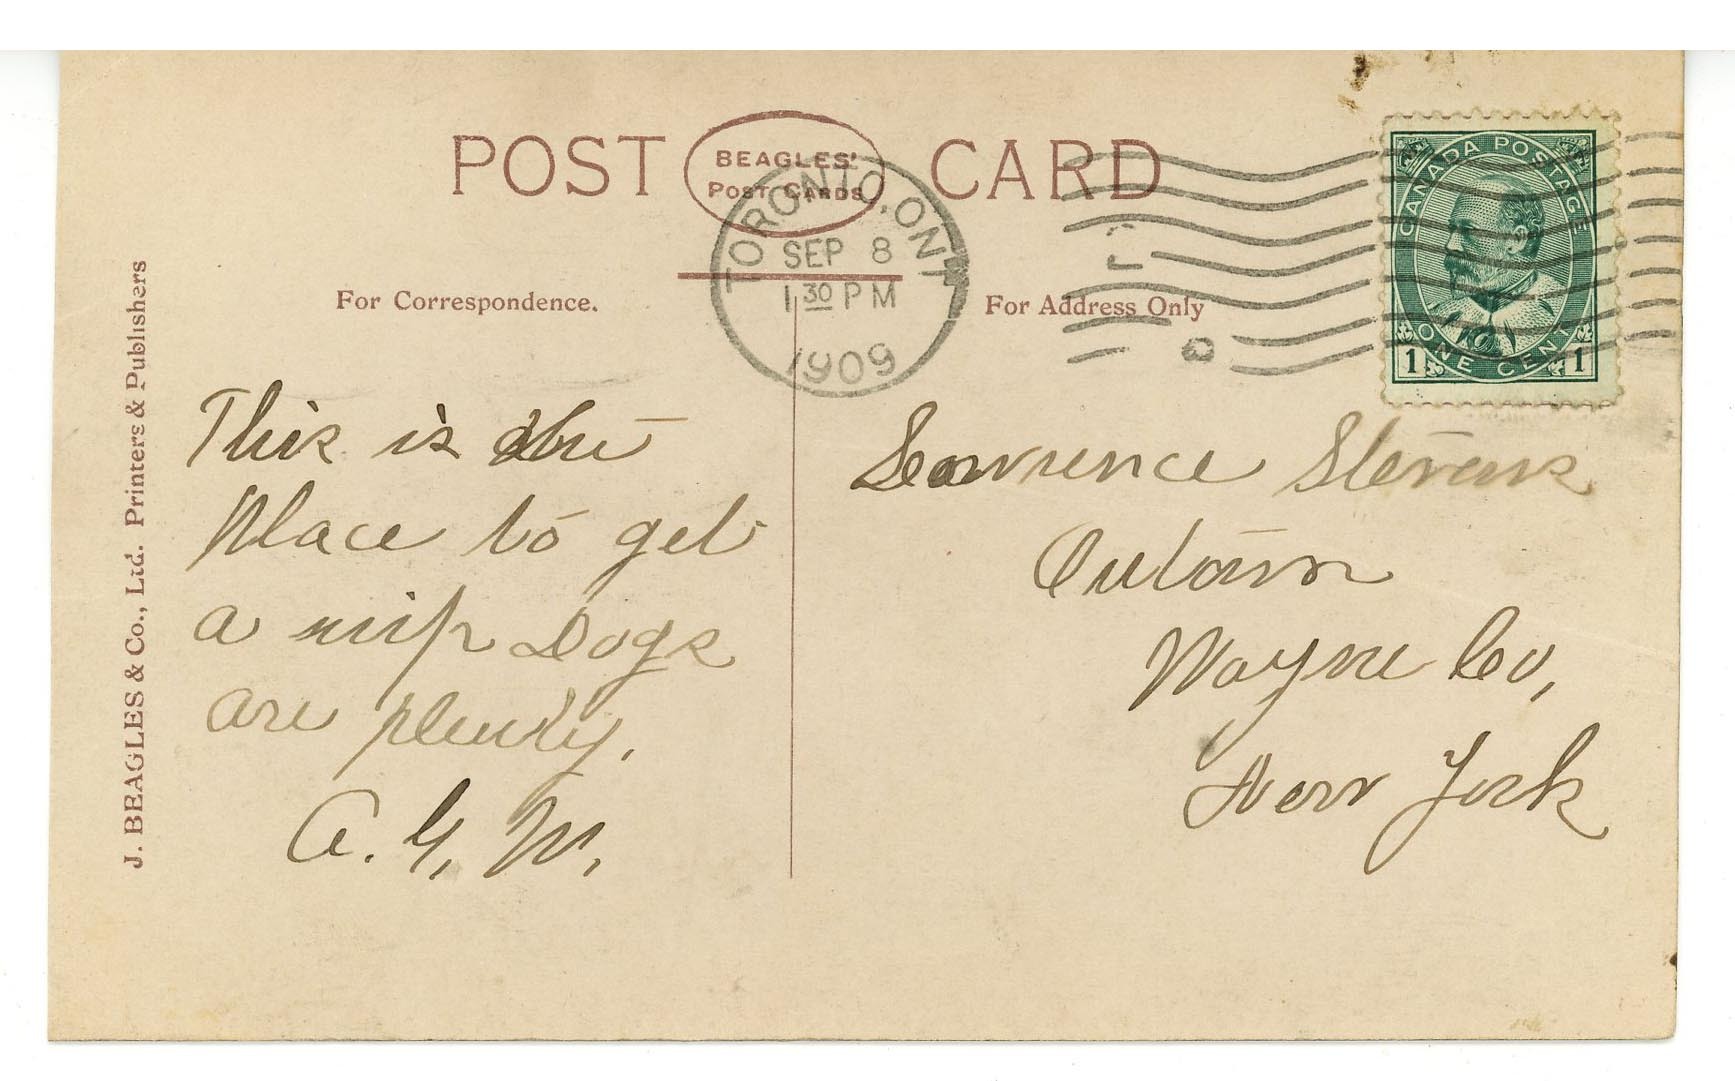 POST CARD
BEAGLES'
POST CARDS
TORONTO, ONT
SEP 8
1 30 PM
1909
CANADA POSTAGE
1 ONE CENT 1
For Correspondence.
For Address Only
J. BEAGLES & Co., Ltd. Printers & Publishers
This is the
Place to get
a nip Dogs
are plenty.
A. G. W.
Lawrence Stevens
Ontario
Wayne Co,
New York